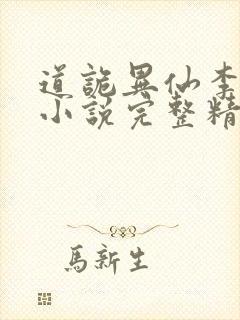 道詭異仙李
小說完整精
馬新生